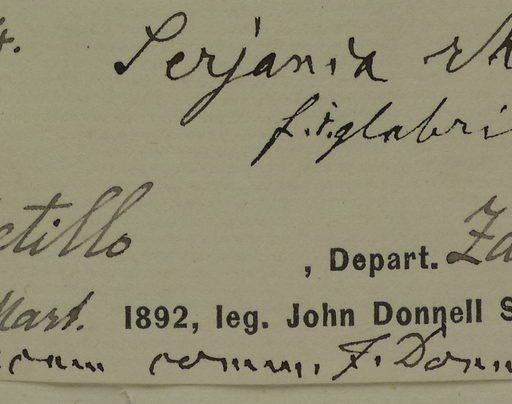 t.
Serjania rh
f. v. glabri
etillo
, Depart. Za
Mart. 1892, leg. John Donnell S
comm. J. Donn